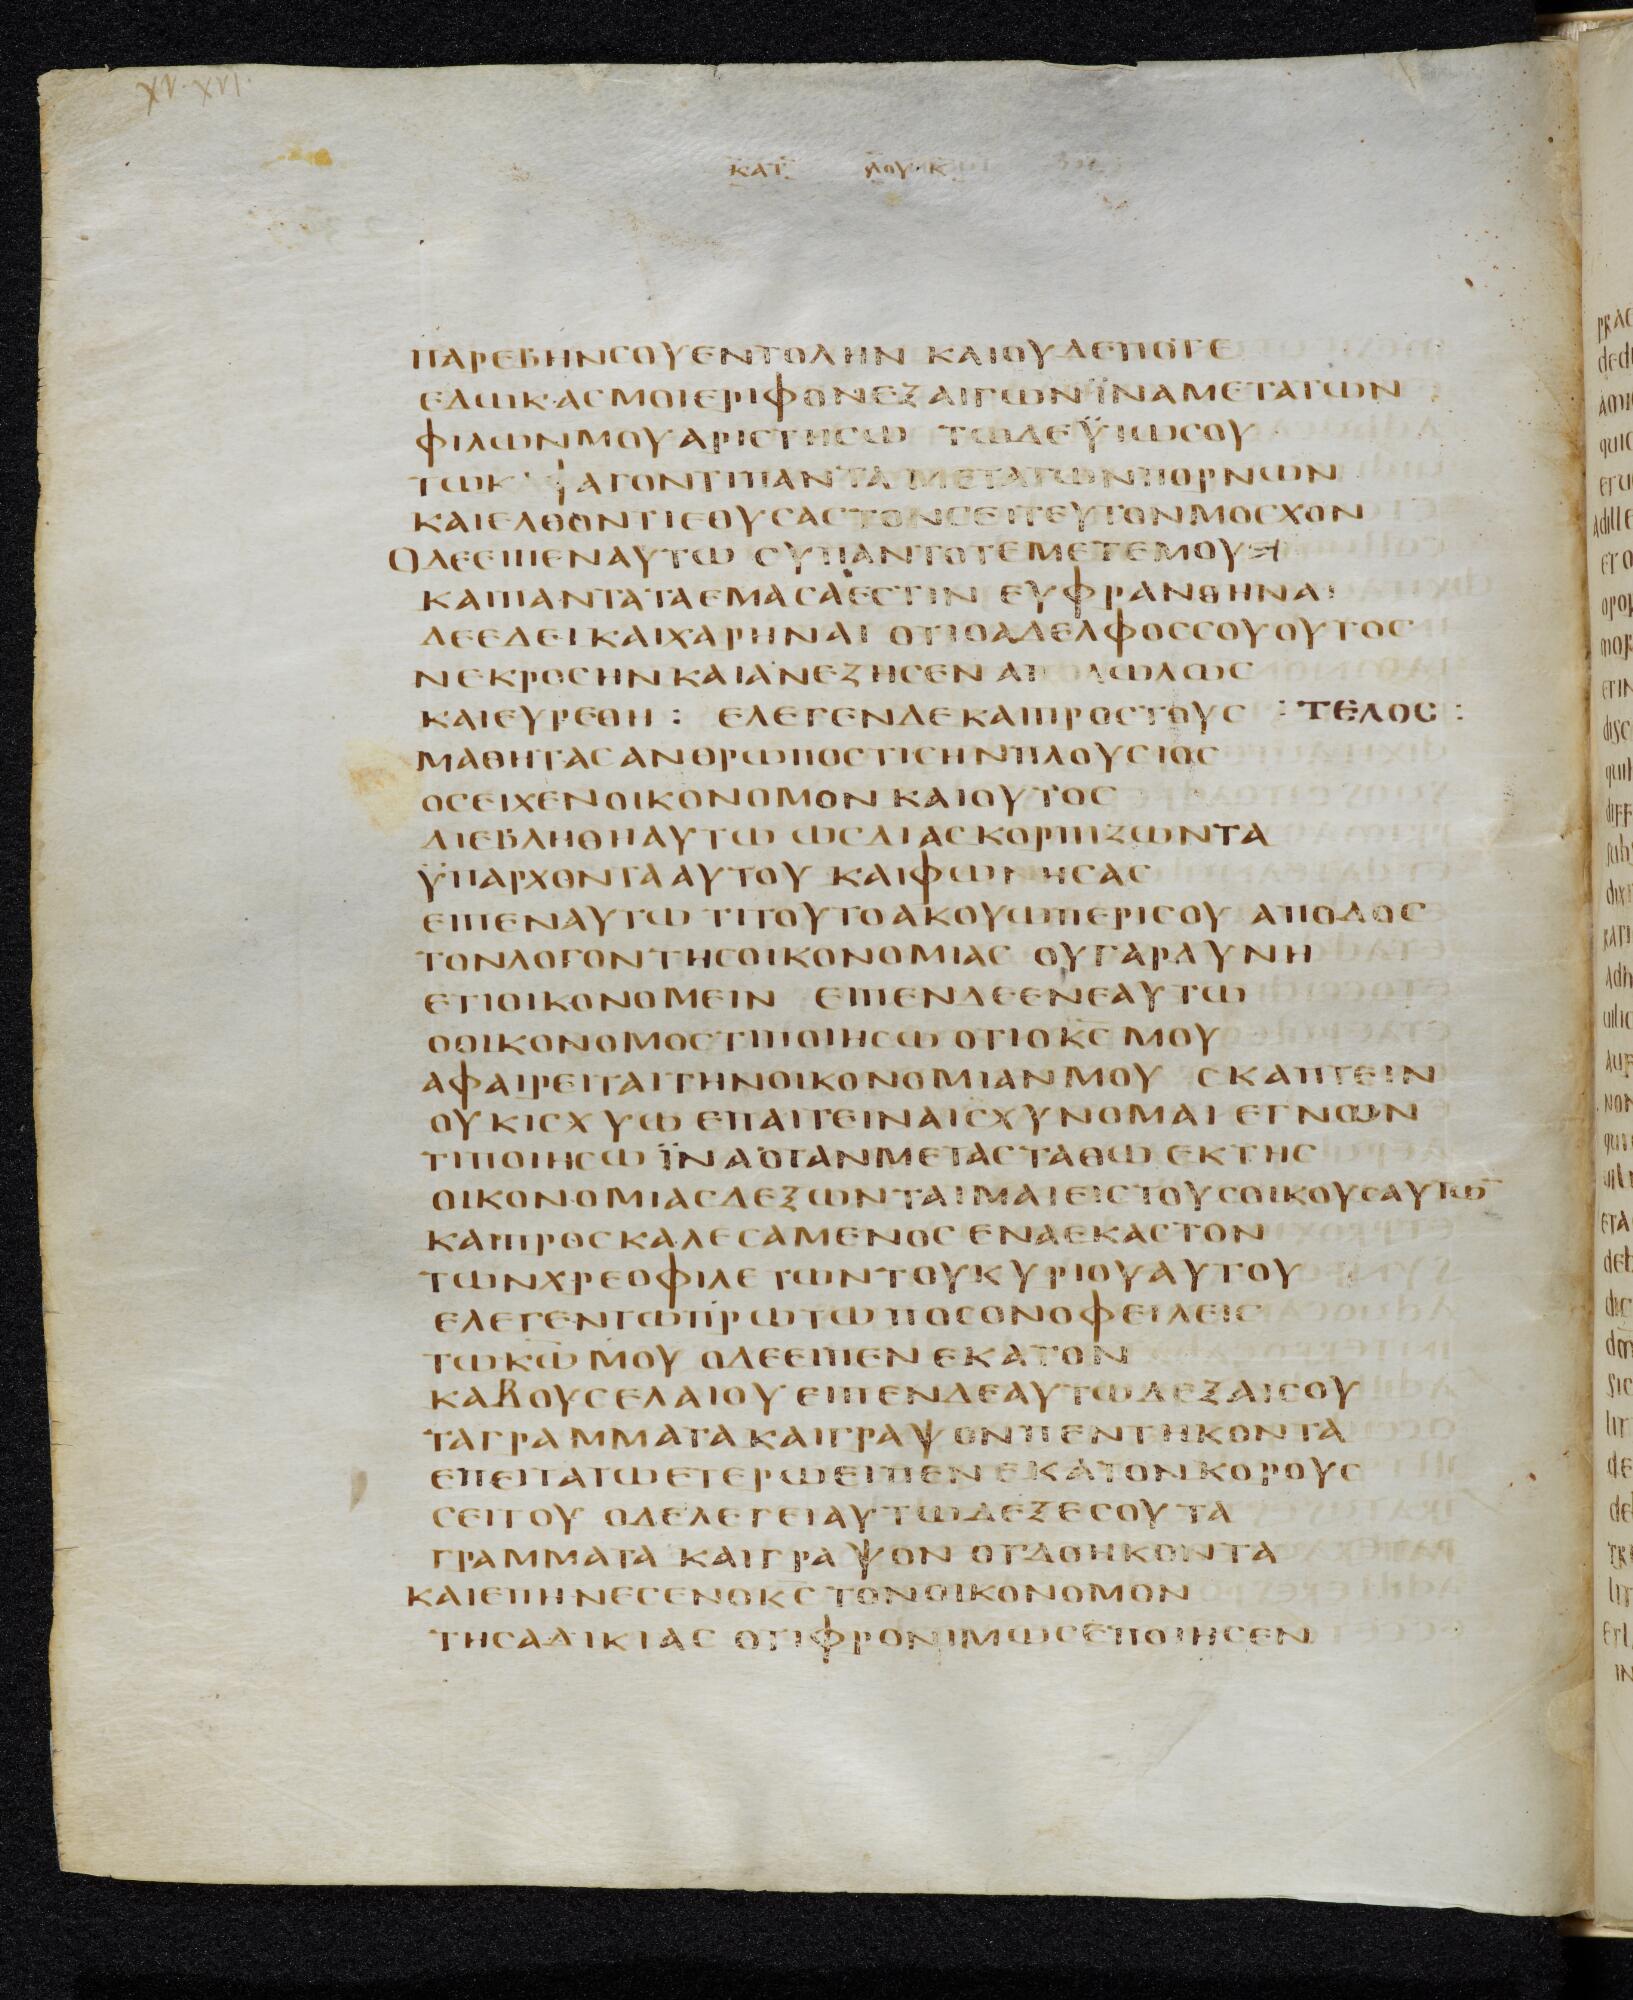 XV·XVI·
ΚΑΤ ΛΟΥΚ
ΠΑΡΕΒΗΝΣΟΥΕΝΤΟΛΗΝ ΚΑΙΟΥΔΕΠΟΤΕ
ΕΔΩΚΑΣΜΟΙΕΡΙΦΟΝΕΞΑΙΓΩΝΪΝΑΜΕΤΑΤΩΝ
ΦΙΛΩΝΜΟΥΑΡΙΣΤΗΣΩ ΤΩΔΕΫΙΩΣΟΥ
ΤΩΚ ΦΑΓΟΝΤΙΠΑΝΤΑΜΕΤΑΤΩΝΠΟΡΝΩΝ
ΚΑΙΕΛΘΟΝΤΙΕΘΥΣΑΣΤΟΝΣΕΙΤΕΥΤΟΝΜΟΣΧΟΝ
ΟΔΕΕΙΠΕΝΑΥΤΩ ΣΥΠΑΝΤΟΤΕΜΕΤΕΜΟΥ
ΚΑΙΠΑΝΤΑΤΑΕΜΑΣΑΕΣΤΙΝ ΕΥΦΡΑΝΘΗΝΑΙ
ΔΕΕΔΕΙΚΑΙΧΑΡΗΝΑΙ ΟΤΙΟΑΔΕΛΦΟΣΣΟΥΟΥΤΟΣ
ΝΕΚΡΟΣΗΝΚΑΙΑΝΕΖΗΣΕΝ ΑΠΟΛΩΛΩΣ
ΚΑΙΕΥΡΕΘΗ : ΕΛΕΓΕΝΔΕΚΑΙΠΡΟΣΤΟΥΣ :ΤΕΛΟΣ:
ΜΑΘΗΤΑΣΑΝΘΡΩΠΟΣΤΙΣΗΝΠΛΟΥΣΙΟΣ
ΟΣΕΙΧΕΝΟΙΚΟΝΟΜΟΝ ΚΑΙΟΥΤΟΣ
ΔΙΕΒΛΗΘΗΑΥΤΩ ΩΣΔΙΑΣΚΟΡΠΙΖΩΝΤΑ
ΫΠΑΡΧΟΝΤΑΑΥΤΟΥ ΚΑΙΦΩΝΗΣΑΣ
ΕΙΠΕΝΑΥΤΩ ΤΙΤΟΥΤΟΑΚΟΥΩΠΕΡΙΣΟΥ ΑΠΟΔΟΣ
ΤΟΝΛΟΓΟΝΤΗΣΟΙΚΟΝΟΜΙΑΣ ΟΥΓΑΡΔΥΝΗ
ΕΤΙΟΙΚΟΝΟΜΕΙΝ ΕΙΠΕΝΔΕΕΝΕΑΥΤΩ
ΟΟΙΚΟΝΟΜΟΣΤΙΠΟΙΗΣΩ ΟΤΙΟΚΣ ΜΟΥ
ΑΦΑΙΡΕΙΤΑΙΤΗΝΟΙΚΟΝΟΜΙΑΝΜΟΥ ΣΚΑΠΤΕΙΝ
ΟΥΚΙΣΧΥΩ ΕΠΑΙΤΕΙΝΑΙΣΧΥΝΟΜΑΙ ΕΓΝΩΝ
ΤΙΠΟΙΗΣΩ ΪΝΑΟΤΑΝΜΕΤΑΣΤΑΘΩ ΕΚΤΗΣ
ΟΙΚΟΝΟΜΙΑΣΔΕΞΩΝΤΑΙΜΑΙΕΙΣΤΟΥΣΟΙΚΟΥΣΑΥΤΩ̅
ΚΑΙΠΡΟΣΚΑΛΕΣΑΜΕΝΟΣ ΕΝΑΕΚΑΣΤΟΝ
ΤΩΝΧΡΕΟΦΙΛΕΤΩΝΤΟΥΚΥΡΙΟΥΑΥΤΟΥ
ΕΛΕΓΕΝΤΩΠΡΩΤΩΠΟΣΟΝΟΦΕΙΛΕΙΣ
ΤΩΚΩ ΜΟΥ ΟΔΕΕΙΠΕΝ ΕΚΑΤΟΝ
ΚΑΒΟΥΣΕΛΑΙΟΥ ΕΙΠΕΝΔΕΑΥΤΩΔΕΞΑΙΣΟΥ
ΤΑΓΡΑΜΜΑΤΑΚΑΙΓΡΑΨΟΝΠΕΝΤΗΚΟΝΤΑ
ΕΠΕΙΤΑΤΩΕΤΕΡΩΕΙΠΕΝΕΚΑΤΟΝΚΟΡΟΥΣ
ΣΕΙΤΟΥ ΟΔΕΛΕΓΕΙΑΥΤΩΔΕΞΕΣΟΥΤΑ
ΓΡΑΜΜΑΤΑ ΚΑΙΓΡΑΨΟΝ ΟΓΔΟΗΚΟΝΤΑ
ΚΑΙΕΠΗΝΕΣΕΝΟΚΣ ΤΟΝΟΙΚΟΝΟΜΟΝ
ΤΗΣΑΔΙΚΙΑΣ ΟΤΙΦΡΟΝΙΜΩΣΕΠΟΙΗΣΕΝ